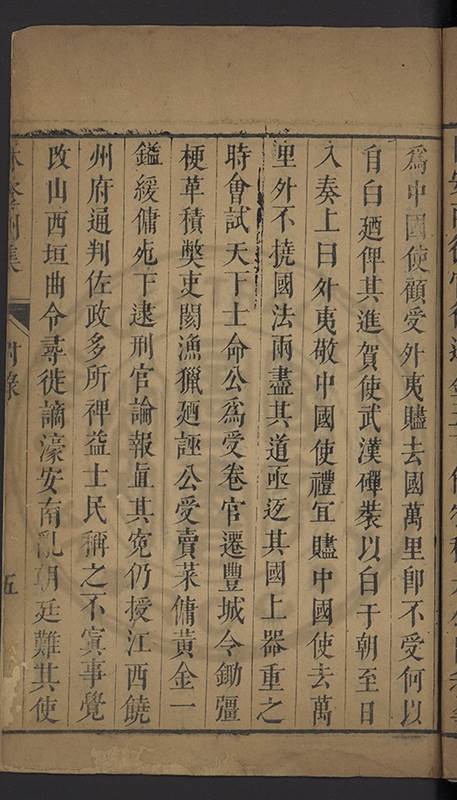 爲中國使顧受外夷贐去國萬里卽不受何以
自白廼俾其進賀使武漢磾裝以自于朝至日
入奏上曰外夷敬中國使禮宜贐中國使去萬
里外不撓國法兩盡其道亟返其國上器重之
時會試天下士命公爲受卷官遷豐城令鋤彊
梗革積獘吏閡漁獵廼誣公受賣菜傭黃金一
鎰緩傭死下逮刑官論報直其寃仍授江西饒
州府通判佐政多所裨益士民稱之不寘事覺
改山西垣曲令尋徙謫濠安南亂朝廷難其使
附錄
五